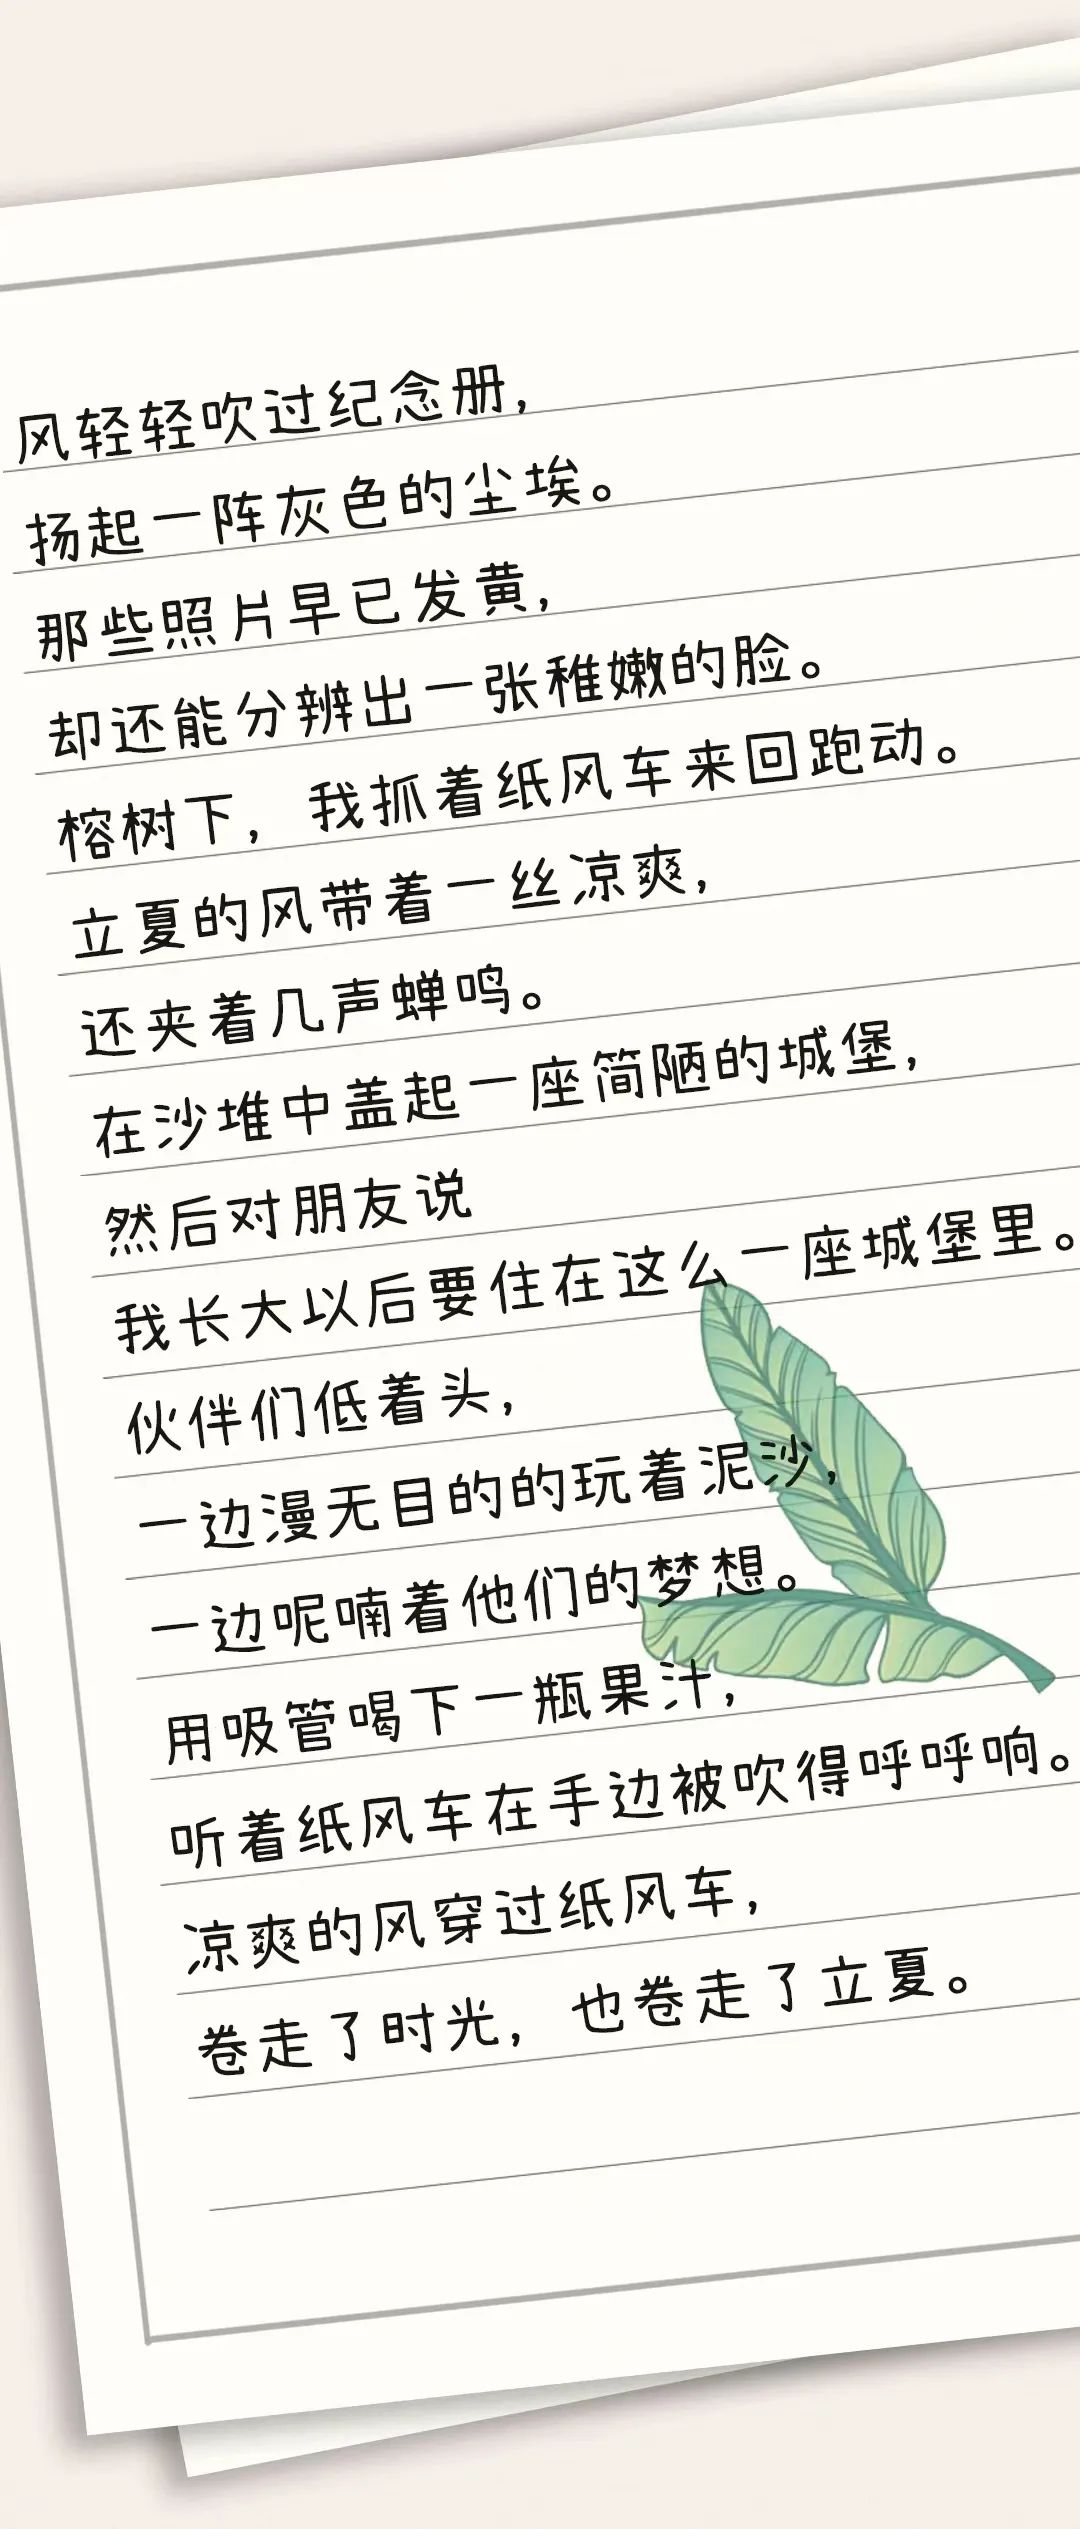 风轻轻吹过纪念册，
扬起一阵灰色的尘埃。
那些照片早已发黄，
却还能分辨出一张稚嫩的脸。
榕树下，我抓着纸风车来回跑动。
立夏的风带着一丝凉爽，
还夹着几声蝉鸣。
在沙堆中盖起一座简陋的城堡，
然后对朋友说
我长大以后要住在这么一座城堡里。
伙伴们低着头，
一边漫无目的的玩着泥沙，
一边呢喃着他们的梦想。
用吸管喝下一瓶果汁，
听着纸风车在手边被吹得呼呼响。
凉爽的风穿过纸风车，
卷走了时光，也卷走了立夏。